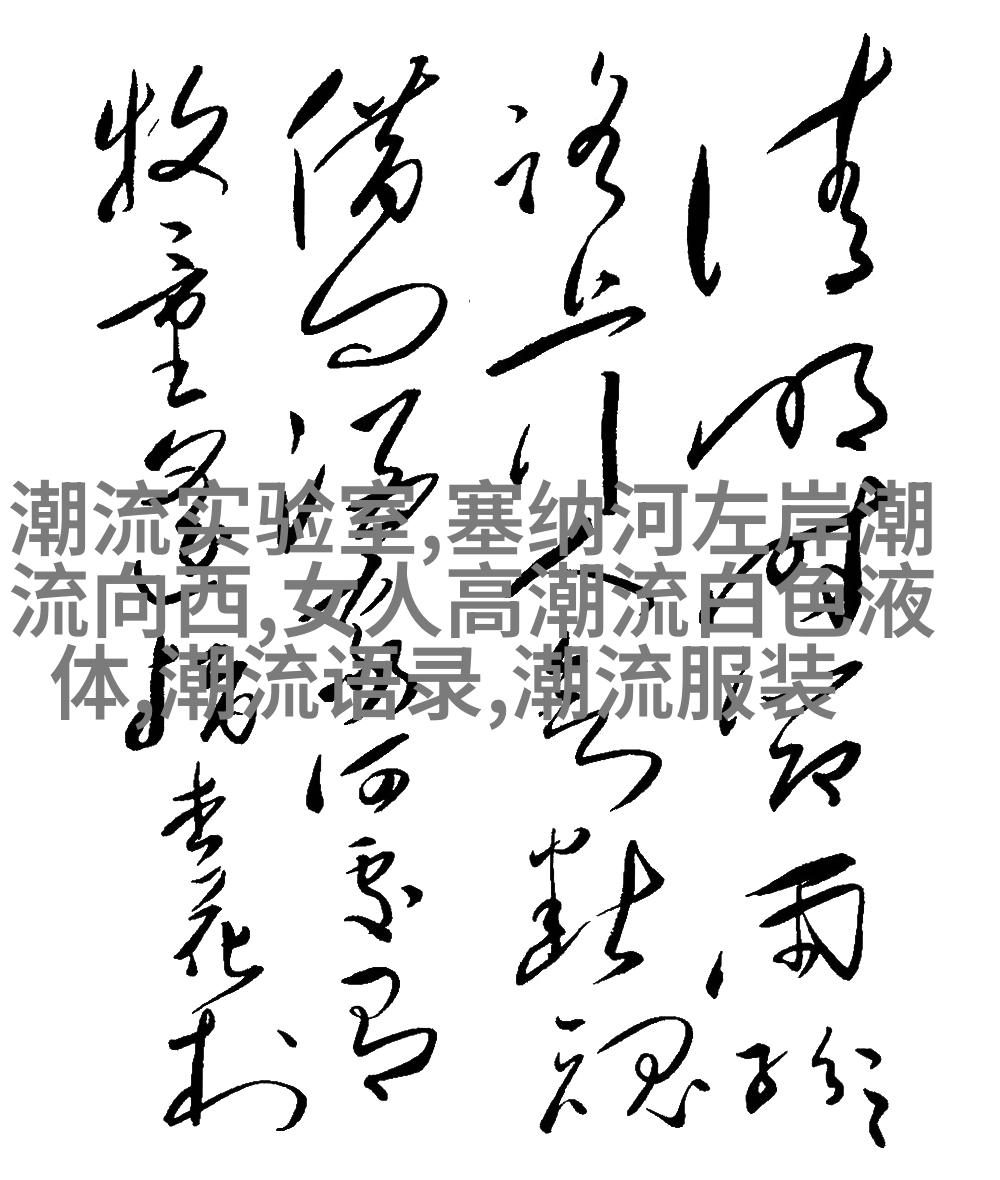 清明時節雨紛紛
路上行人欲斷魂
借問酒家何處有
牧童遙指杏花村
潮流实验室,塞纳河左岸潮
流向西,女人高潮流白色液
体,潮流语录,潮流服装